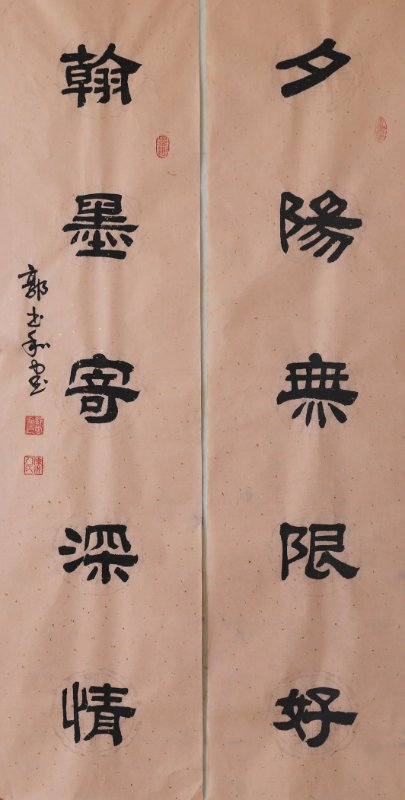 夕陽無限好
翰墨寄深情
郭玉和書